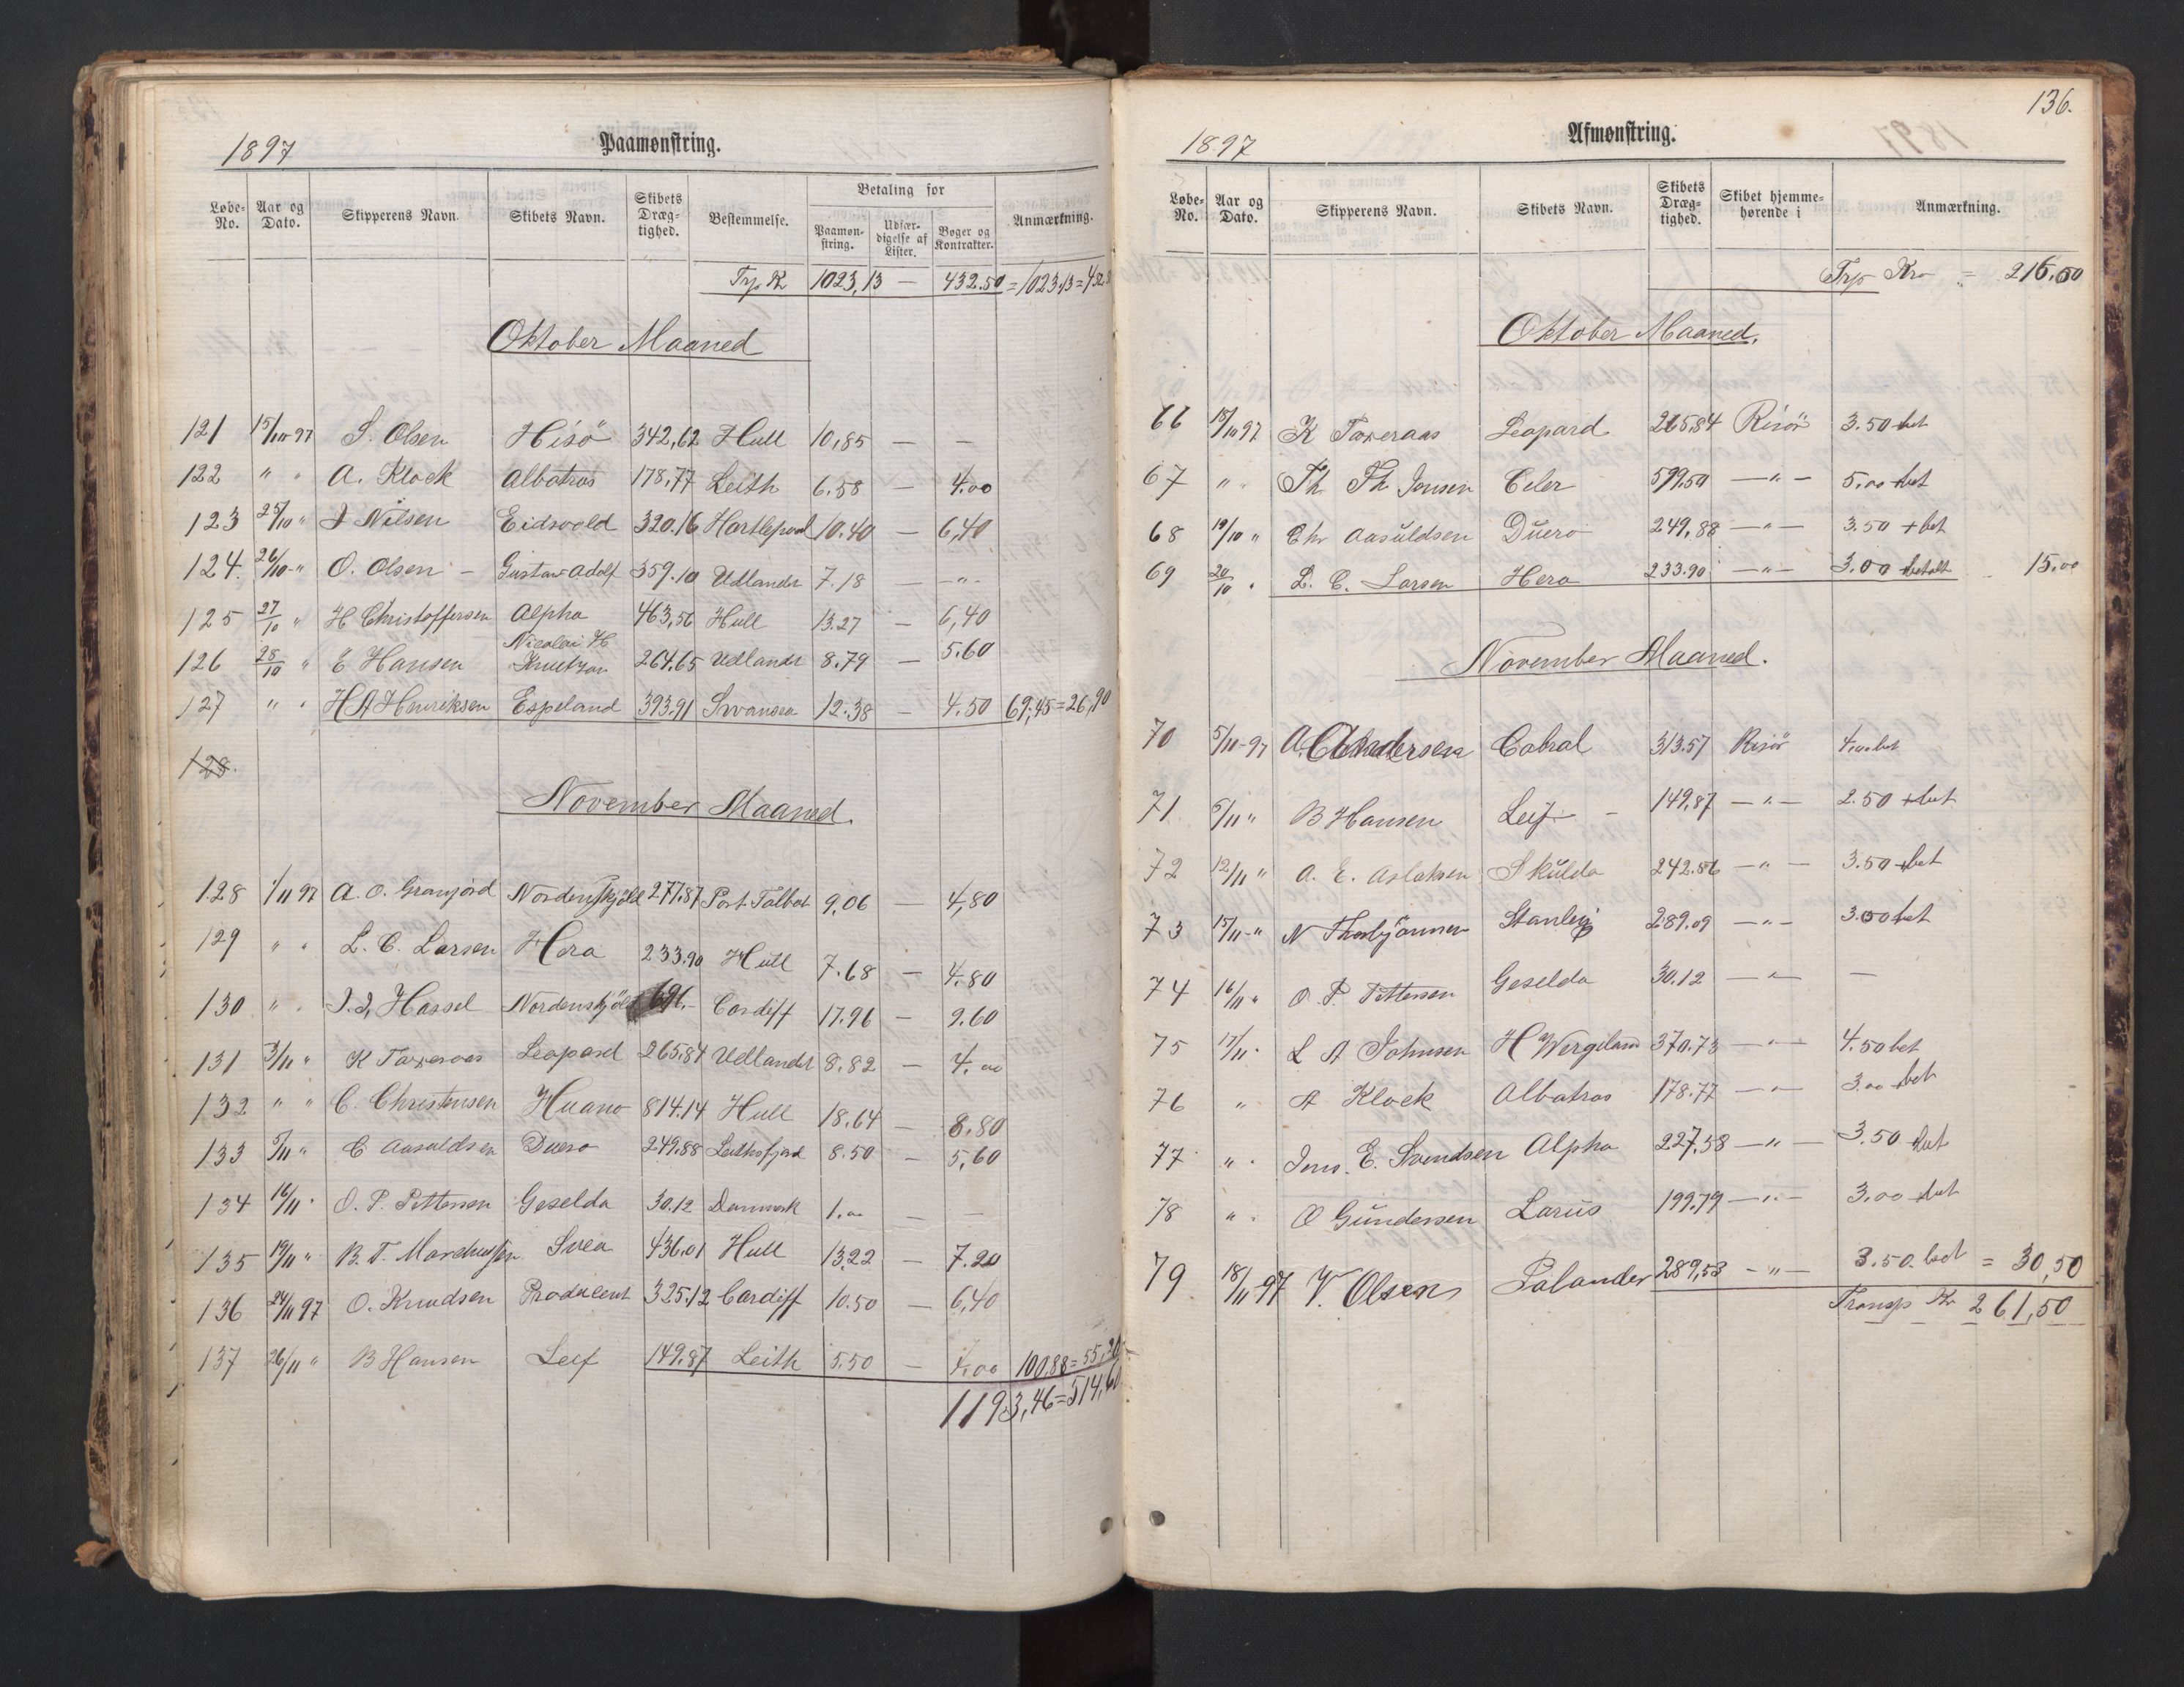 1897
Paamønstring.
Løbe-No. Aar og Dato. Skipperens Navn. Skibets Navn. Skibets Dræg-tighed. Bestemmelse. Betaling for Paamøn-string. Udfær-digelse af Lister. Bøger og Kontrakter. Anmærkning.
1023,13 — 432.50 = 1023,13 =
Oktober Maaned
121 15/10 97 S. Olsen Hisö 342,62 Hull 10,85 — —
122 " " A. Klock Albatros 178,77 Leith 6.58 — 4.00
123 25/10 " Nilsen Eidsvold 320.16 Hartlepool 10.40 — 6,40
124. 26/10 " O. Olsen — Gustav Adolf 359.10 Udlandet 7.18 — — " —
125 27/10 " H Christoffersen Alpha 463,56 Hull 13.27 — 6,40
126 28/10 " E Hansen Nicolai H Knutzon 264.65 Udlandet 8.79 — 5.60
127 " " H A Henriksen Espeland 393.91 Swansea 12.38 — 4.50 69,45 = 26,90
128.
November Maaned.
128 1/11 97 A. O. Granfjord Nordenskjöld 277.87 Port Talbot 9,06 — 4,80
129 " " L. C. Larsen Hera 233.90 Hull 7.68 — 4.80
130 " " Hassel Nordenskjöld 691.– Cardiff 17.96 — 9.60
131 3/11 " K Taxeraas Leopard 265.84 Udlandet 8.82 — 4.00
132 " " C. Christensen Huano 814.14 Hull 18.64 — 8.80
133 5/11 " C Aasuldsen Duero 249.88 Leithsfjord 8.50 — 5,60
134 16/11 " O. P. Pettersen Geselda 30.12 Danmark 1.00 — —
135 19/11 " B. T. Marchussen Svea 436.01 Hull 13.22 — 7.20
136 24/11 97 O. Knudsen Producent 325.12 Cardiff 10.50 — 6,40
137 26/11 " B Hansen Leif 149.87 Leith 5.50 — 4.00 100.88 = 55,20
1193,46 = 514,60
136.
1897
Afmønstring.
Løbe-No. Aar og Dato. Skipperens Navn. Skibets Navn. Skibets Dræg-tighed. Skibet hjemme-hørende i Anmærkning.
Trp Kr = 216.00
Oktober Maaned.
66 18/10 97 K Taxeraas Leopard 265.84 Risör 3.50 bet
67 " " Th Th Jensen Celer 599.50 — " — 5.00 bet
68 19/10 " Chr Aasuldsen Duero 249,88 — " — 3.50 bet
69 20/10 " L. C. Larsen Hera 233.90 — " — 3.00 betalt 15.00
November Maaned.
70 5/11-97 Andersen Cabral 313.57 Risör 4.00 bet
71 5/11 " B Hansen Leif — 149.87 — " — 2.50 bet
72 12/11 " A. E. Aslaksen Skulda 242.86 — " — 3.50 bet
73 15/11 " N Thorbjörnsen Stanley 289.09 — " — 3.00 bet
74 16/11 " O. P. Pettersen Geselda 30.12 — " — —
75 17/11 " L A Johnsen H Wergeland 370.73 — " — 4.50 bet
76 " A Klock Albatros 178.77 — " — 3.00 bet
77 " " Jens. E. Svendsen Alpha 227,58 — " — 3.50 bet
78 " " O Gundersen Larus 199.79 — " — 3.00 bet
79 18/11 97 V. Olsen Palander 289,53 — " — 3.50. bet = 30,50
Transp Kr 261,50